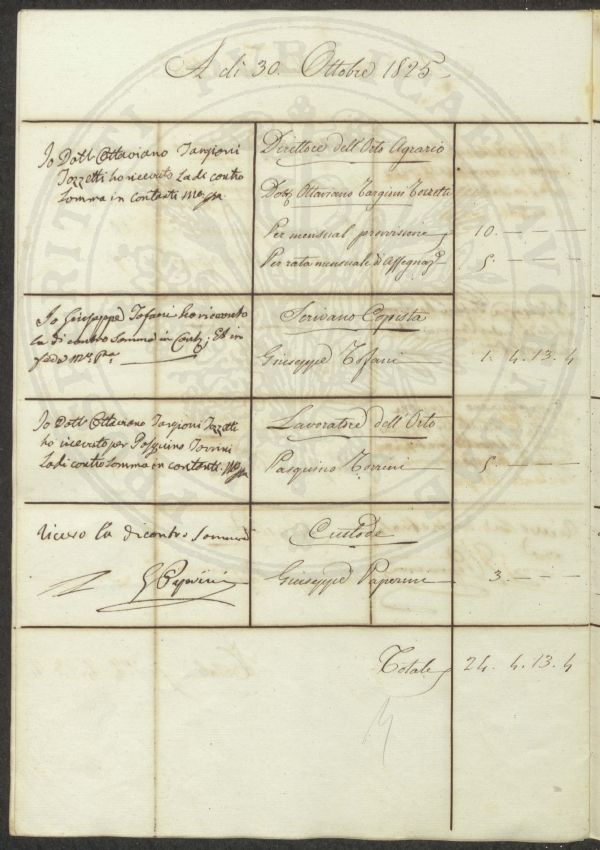 A di 30. Ottobre 1825
Io Dott. Ottaviano Targioni
Tozzetti ho ricevuto la di contro
Somma in contanti
Direttore dell'Orto Agrario
Dott. Ottaviano Targioni Tozzetti
Per mensual provvisione 10. — — —
Per rata mensuale di Assegnaz. 5. — — —
Io Giuseppe Tofani ho ricevuto
la di contro Somma in Cont; Et in
fede
Scrivano Copista
Giuseppe Tofani 1. 4. 13. 4
Io Dott. Ottaviano Targioni Tozzetti
ho ricevuto per Pasquino Torrini
la di contro Somma in contanti.
Lavoratore dell'Orto
Pasquino Torrini 5. — — —
Ricevo la di contro Somma
G Paperini
Custode
Giuseppe Paperini 3. — — —
Totale 24. 4. 13. 4